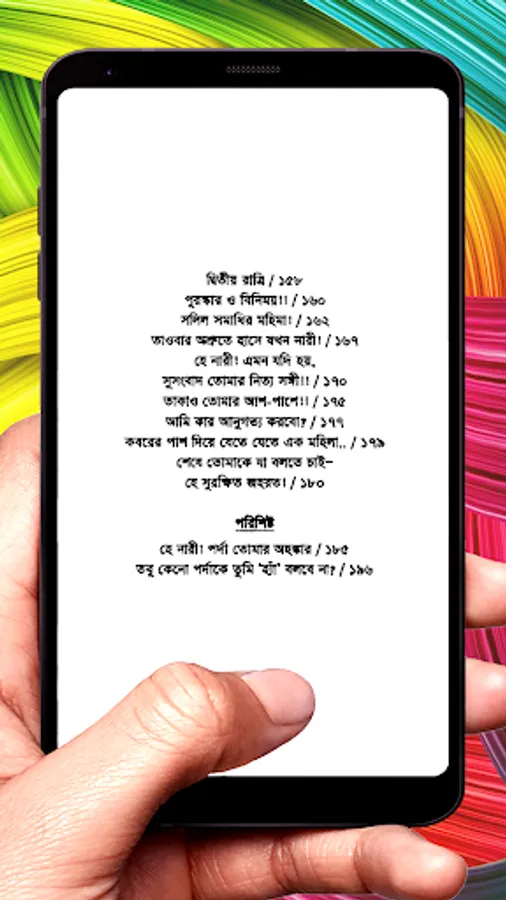 দ্বিতীয় রাত্রি / ১৫৮
পুরস্কার ও বিনিময়!! / ১৬০
সলিল সমাধির মহিমা! / ১৬২
তাওবার অশ্রুতে হাসে যখন নারী! / ১৬৭
হে নারী! এমন যদি হয়,
সুসংবাদ তোমার নিত্য সঙ্গী!! / ১৭০
তাকাও তোমার আশ-পাশে!! / ১৭৫
আমি কার আনুগত্য করবো? / ১৭৭
কবরের পাশ দিয়ে যেতে যেতে এক মহিলা.. / ১৭৯
শেষে তোমাকে যা বলতে চাই–
হে সুরক্ষিত জহরত! / ১৮০
পরিশিষ্ট
হে নারী! পর্দা তোমার অহঙ্কার / ১৮৫
তবু কেনো পর্দাকে তুমি 'হ্যাঁ' বলবে না? / ১৯৬